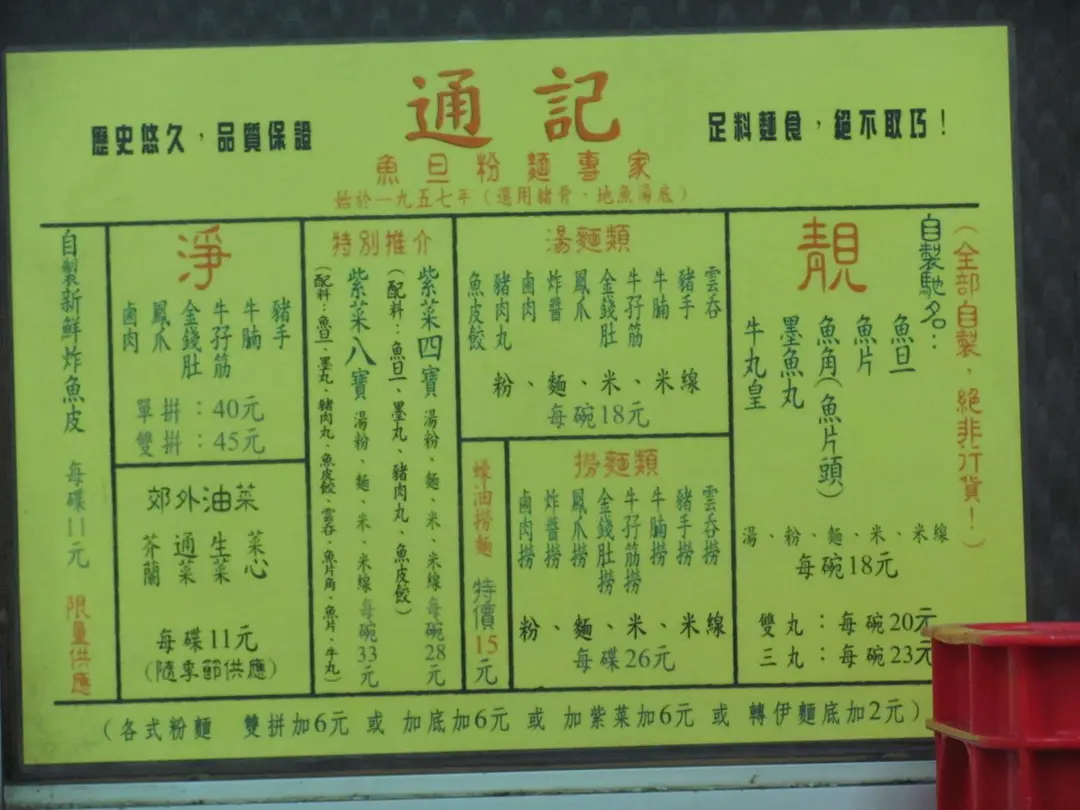 通記
歷史悠久，品質保證
足料麵食，絕不取巧！
魚旦粉麵專家
始於一九五七年（選用豬骨、地魚湯底）
靚
（全部自製，絕非行貨！）
自製馳名：
魚旦
魚片
魚角（魚片頭）
墨魚丸
牛丸皇
湯、粉、麵、米、米線
每碗18元
雙丸：每碗20元
三丸：每碗23元
湯麵類
雲吞
豬手
牛腩
牛孖筋
金錢肚
鳳爪
炸醬
鹵肉
豬肉丸
魚皮餃
粉、麵、米、米線
每碗18元
撈麵類
雲吞撈
豬手撈
牛腩撈
牛孖筋撈
金錢肚撈
鳳爪撈
炸醬撈
鹵肉撈
粉、麵、米、米線
每碟26元
蠔油撈麵 特價15元
特別推介
紫菜四寶 湯粉、麵、米、米線 每碗28元
（配料：魚旦、墨丸、豬肉丸、魚皮餃）
紫菜八寶 湯粉、麵、米、米線 每碗33元
（配料：魚旦、墨丸、豬肉丸、魚皮餃、雲吞、魚片角、魚片、牛丸）
淨
豬手
牛腩
牛孖筋
金錢肚
鳳爪
鹵肉
單拼：40元
雙拼：45元
郊外油菜
菜心
生菜
通菜
芥蘭
每碟11元
（隨季節供應）
自製新鮮炸魚皮 每碟11元 限量供應
（各式粉麵 雙拼加6元 或 加底加6元 或 加紫菜加6元 或 轉伊麵底加2元）